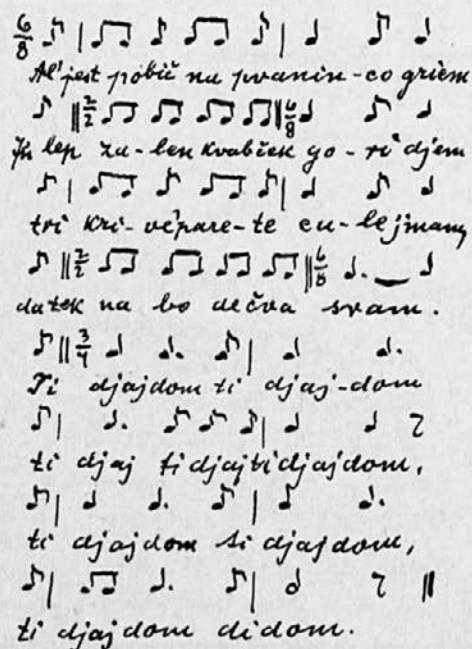 Al' jest pobič na pranin-co griem
In lep za-len kvabček go-ri djem
tri kri-vč'pare-te cu-lejmam
da tek na bo dečva sram.
Ti djajdom ti djaj-dom
ti djaj tidjajtidjajdom,
ti djajdom ti djajdom,
ti djajdom didom.